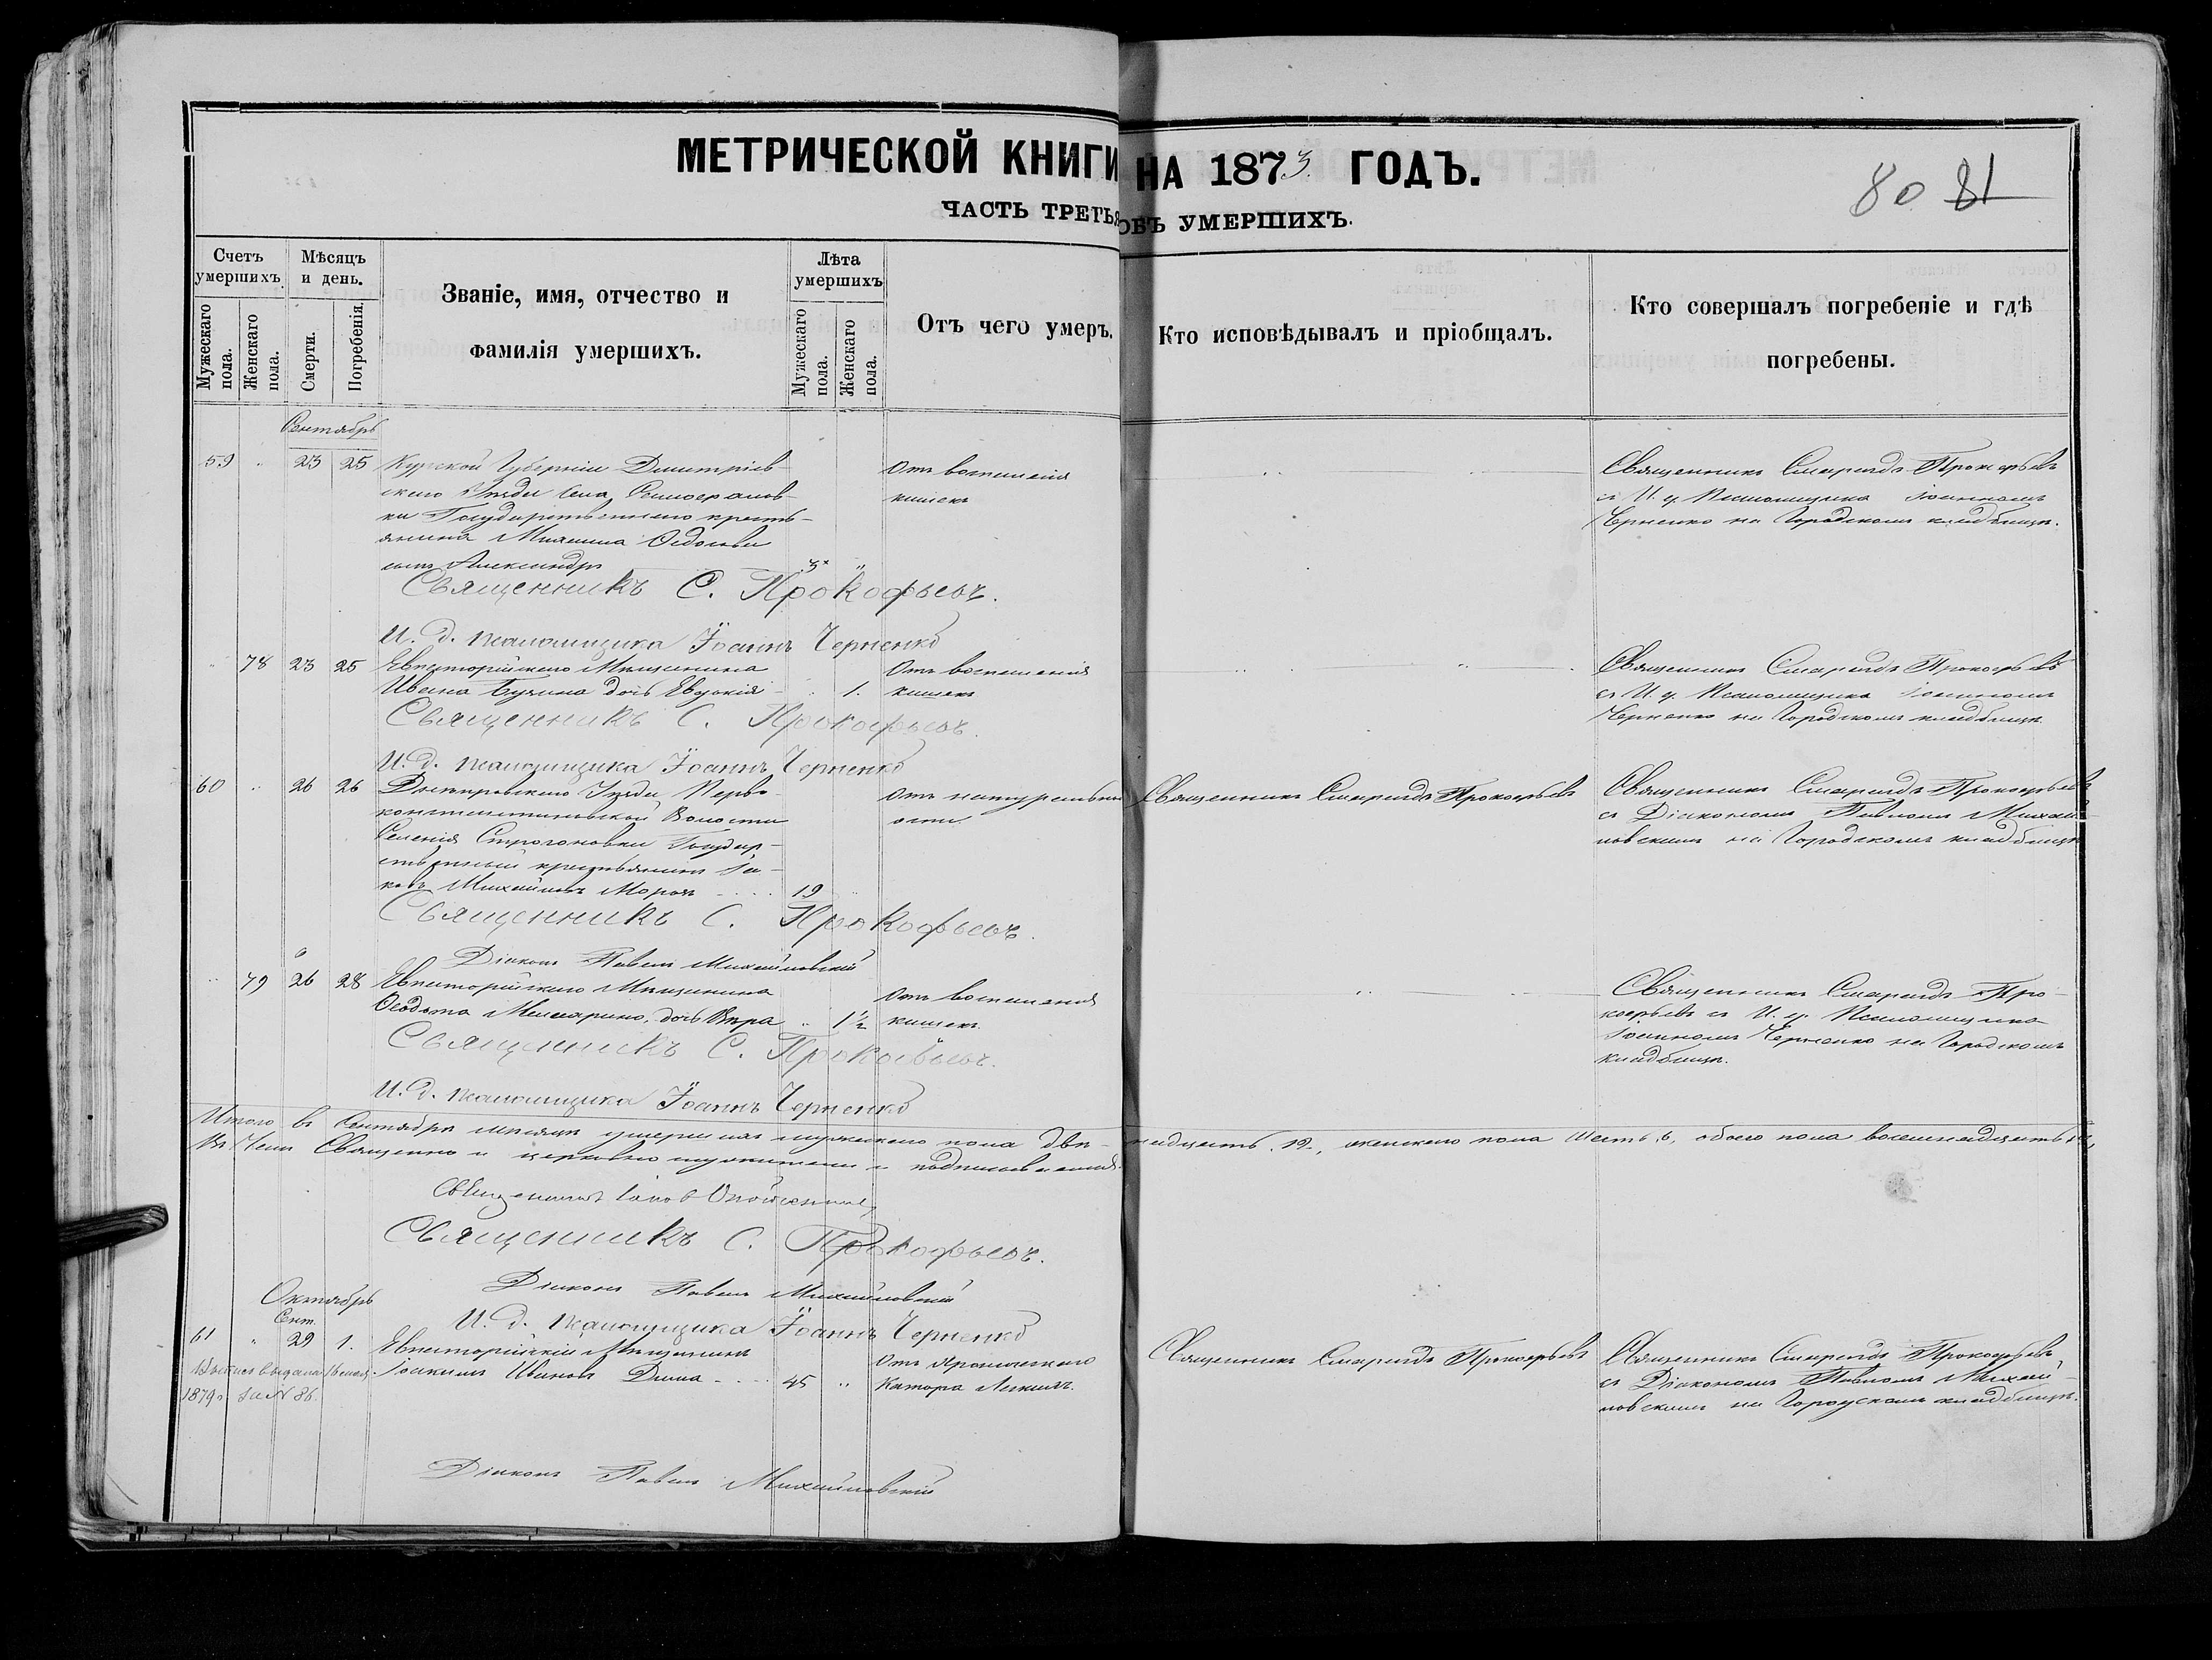 МЕТРИЧЕСКОЙ КНИГИ НА 1873 ГОДЪ.
80 81
ЧАСТЬ ТРЕТЬЯ ОБЪ УМЕРШИХЪ.
Счетъ умершихъ.
Мужескаго пола.
Женскаго пола.
Мѣсяцъ и день.
Смерти.
Погребенія.
Званіе, имя, отчество и
фамилія умершихъ.
Лѣта умершихъ
Мужескаго пола.
Женскаго пола.
Отъ чего умеръ.
Кто исповѣдывалъ и пріобщалъ.
Кто совершалъ погребеніе и гдѣ
погребены.
Сентябрь
59 " 23 25 Курской Губерніи Дмитріев-
скаго Уѣзда Села
ки Государственнаго кресть-
янина
сынъ Александръ 3 "
Отъ воспаленія
кишекъ
Священникъ Смарагдъ Прокофьевъ
съ И. д. Псаломщика Іоанномъ
Черненко на Городскомъ кладбищѣ.
Священникъ С. Прокофьевъ.
И. д. псаломщика Іоаннъ Черненко
" 78 23 25 Евпаторійскаго Мѣщанина
Ивана дочь Евдокія " 1.
Отъ воспаленія
кишекъ
Священникъ Смарагдъ Прокофьевъ
съ И. д. Псаломщика Іоанномъ
Черненко на Городскомъ кладбищѣ.
Священникъ С. Прокофьевъ.
И. д. псаломщика Іоаннъ Черненко
60 " 26 26 Днѣпровскаго Уѣзда Перво-
константиновской Волости
Селенія Строгоновки Государ-
ственный крестьянинъ Іа-
ковъ Михайловъ Морозъ 19 "
Отъ натуральной
оспы
Священникъ Смарагдъ Прокофьевъ
Священникъ Смарагдъ Прокофьевъ
съ Діакономъ Павломъ Михай-
ловскимъ на Городскомъ кладбищѣ
Священникъ С. Прокофьевъ.
Діаконъ Павелъ Михайловскій
" 79 26 28 Евпаторійскаго Мѣщанина
Ѳеодота дочь Вѣра " 1½
Отъ воспаленія
кишекъ.
Священникъ Смарагдъ Про-
кофьевъ съ И. д. Псаломщика
Іоанномъ Черненко на Городскомъ
кладбищѣ.
Священникъ С. Прокофьевъ.
И. д. псаломщика Іоаннъ Черненко
Итого въ Сентябрѣ мѣсяцѣ умершихъ мужескаго пола двѣ-надцать 12, женскаго пола шесть 6, обоего пола восемнадцать 18,
Въ чемъ Священно и церковно служители и подписываемся.
Священникъ Іаковъ
Священникъ С. Прокофьевъ.
Діаконъ Павелъ Михайловскій
И. д. псаломщика Іоаннъ Черненко
Октябрь
Сент.
61 " 29 1. Евпаторійскій Мѣщанинъ
Іоакимъ Ивановъ Дима 45 "
Отъ Хроническаго
Катора Легкихъ.
Священникъ Смарагдъ Прокофьевъ
Священникъ Смарагдъ Прокофьевъ
съ Діакономъ Павломъ Михай-
ловскимъ на Городскомъ кладбищѣ.
Выпись выдана
1879 г. за N 86.
Діаконъ Павелъ Михайловскій